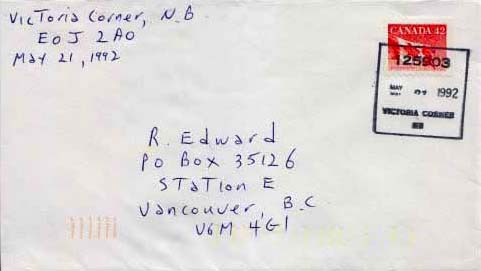 Victoria Corner, N.B
E0J 2A0
May 21, 1992
CANADA 42
125903
MAY 1992
VICTORIA CORNER
NB
R. Edward
PO Box 35126
Station E
Vancouver, B.C
V6M 4G1